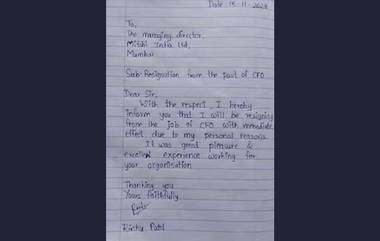 Date : 15-11-2024
To,
The managing director,
Mitshi India Ltd,
Mumbai
Sub: Resignation from the post of CFO
Dear Sir,
With the respect, I hereby
inform you that I will be resigning
from the job of CFO with immediate
effect due to my personal reasons
It was great pleasure &
excellent experience working for
your organisation
Thanking you
Yours faithfully
Patel